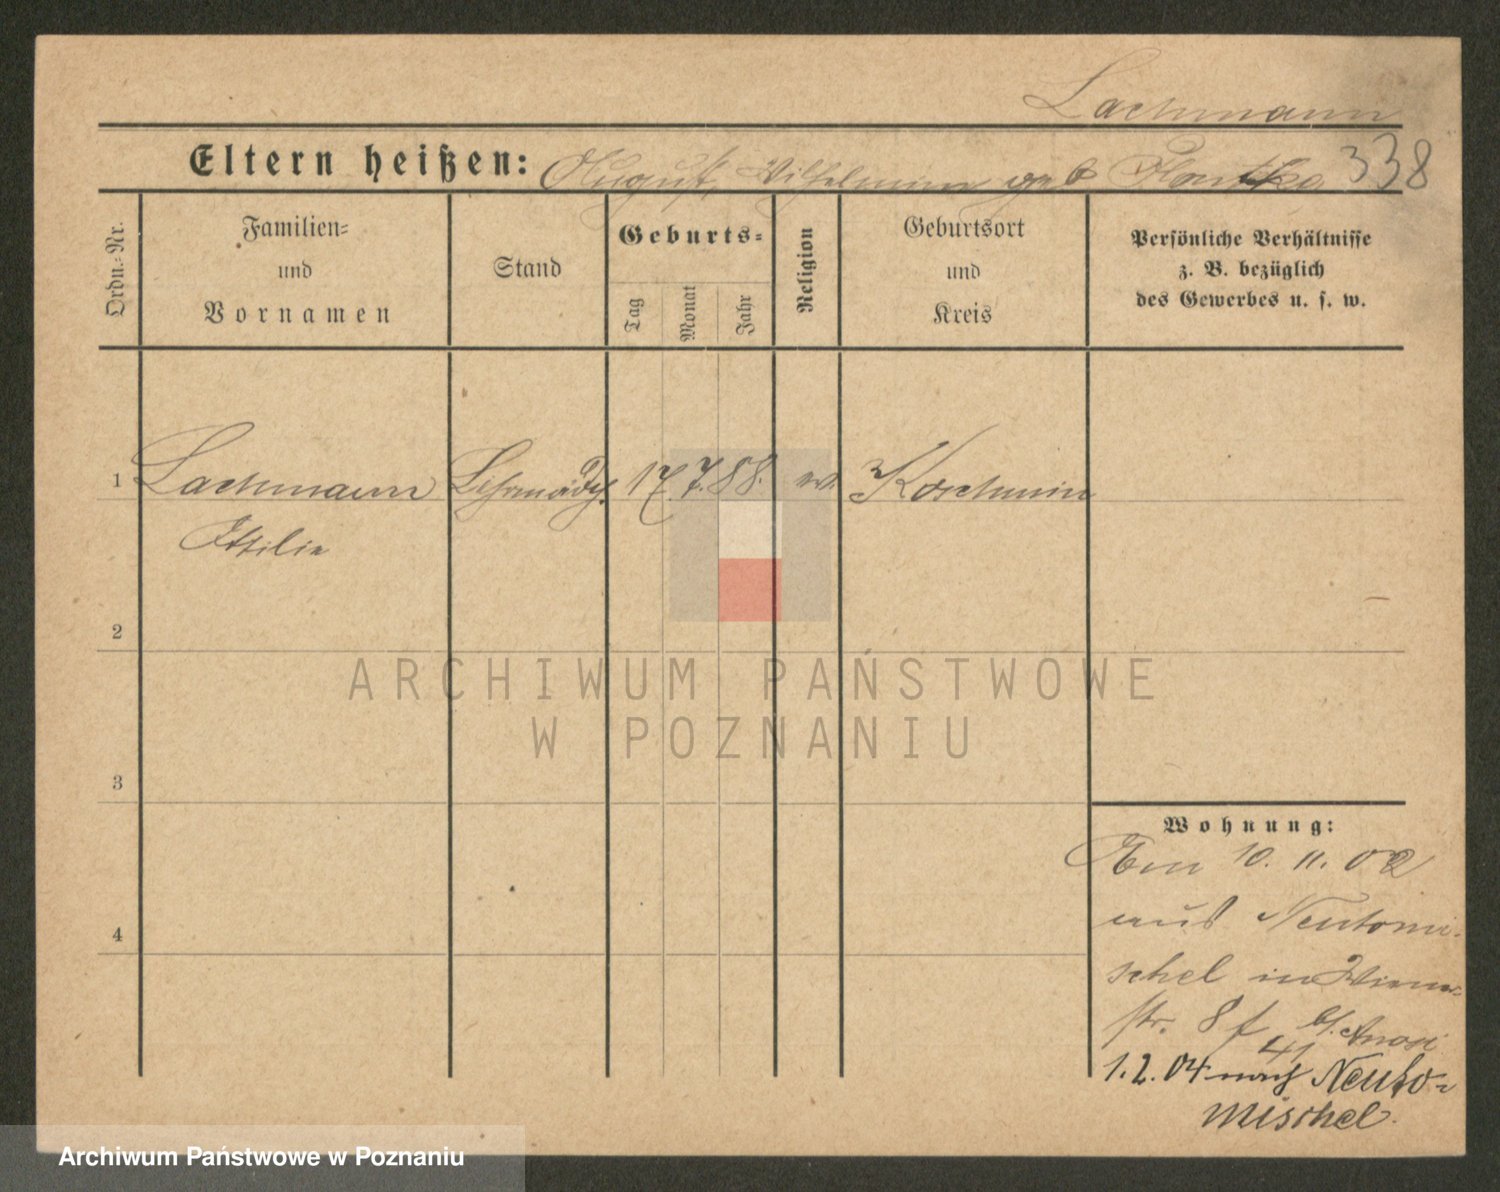 Lachmann
Eltern heißen: August, Wilhelmine geb
338
Ordn.-Nr.
Familien-
und
Vornamen
Stand
Geburts-
Tag
Monat
Jahr
Religion
Geburtsort
und
Kreis
Persönliche Verhältnisse
z. B. bezüglich
des Gewerbes u. s. w.
1 Lachmann 17. 7. 88. ev. Koschmin
2
ARCHIWUM PAŃSTWOWE
W POZNANIU
3
4
Wohnung:
10. 11. 02
aus Neutomi-
schel in
str. 8 b/.
41
1. 2. 04 nach Neuto-
mischel.
Archiwum Państwowe w Poznaniu